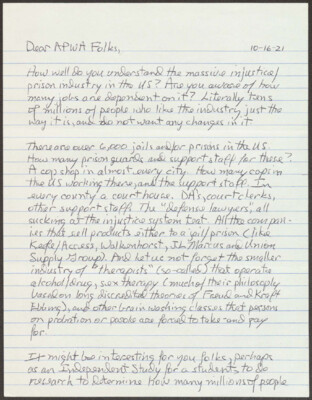 Dear APWA Folks, 10-16-21
How well do you understand the massive injustice/
prison industry in the US? Are you aware of how
many jobs are dependent on it? Literally tens
of millions of people who like the industry just the
way it is, and do not want any changes in it.
There are over 6,000 jails and/or prisons in the US.
How many prison guards and support staff for these?
A cop shop in almost every city. How many cops in
the US working there, and the support staff. In
every county a court house. DA's, court clerks,
other support staff. The "defense lawyers", all
sucking at the injustice system teat. All the compan-
ies that sell products either to a jail/prison (like
Keefe/Access, Walkenhorst, JL Marcus and Union
Supply Group). And let us not forget the smaller
industry of "therapists" (so-called) that operate
alcohol/drug, sex therapy (much of their philosophy
based on long discredited theories of Freud and Kraft
Ebbing), and other brain washing classes that persons
on probation or parole are forced to take and pay
for.
It might be interesting for you folks, perhaps
as an Independent Study for a student to do
research to determine how many millions of people